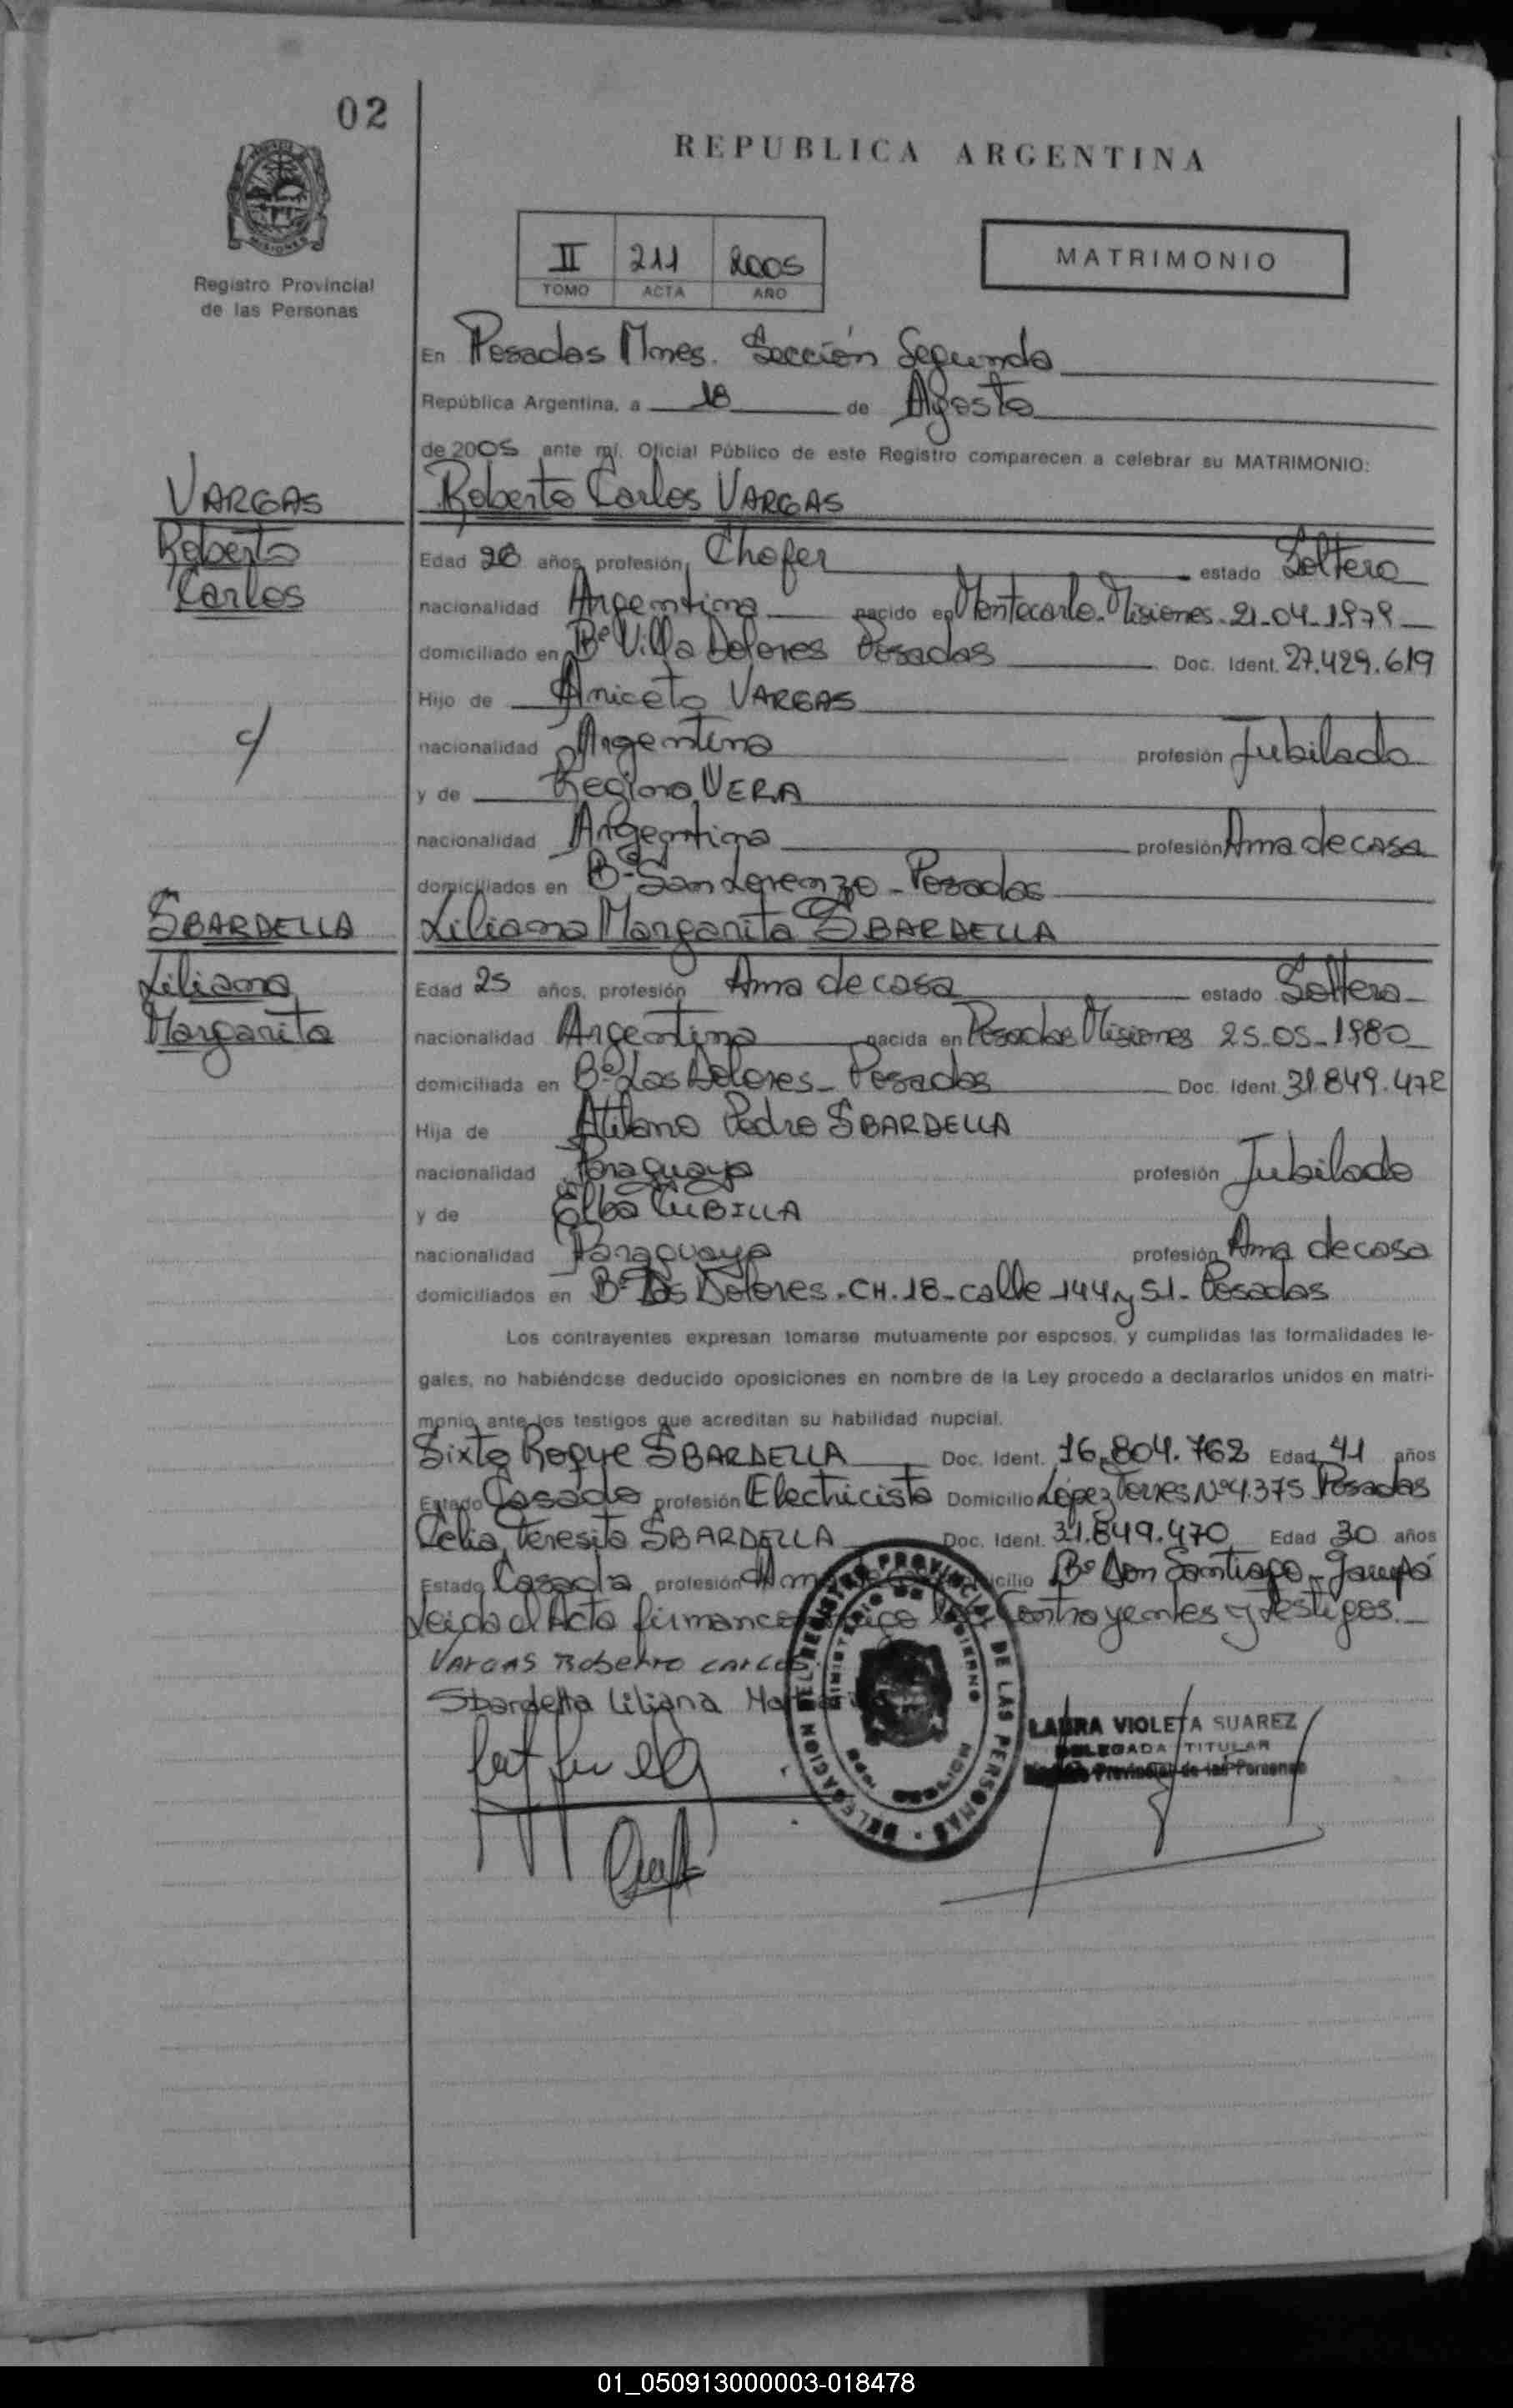 02
REPUBLICA ARGENTINA
MISIONES
Registro Provincial
de las Personas
II 211 2005
TOMO ACTA AÑO
MATRIMONIO
En Posadas Mnes. Sección Segunda
República Argentina, a 18 de Agosto
de 2005 ante mí, Oficial Público de este Registro comparecen a celebrar su MATRIMONIO:
VARGAS
Roberto
Carlos
Roberto Carlos VARGAS
Edad 26 años, profesión Chofer estado Soltero
nacionalidad Argentina nacido en Montecarlo. Misiones. 21-04-1979
domiciliado en Bº Villa Dolores Posadas Doc. Ident. 27.429.619
Hijo de Aniceto VARGAS
nacionalidad Argentina profesión Jubilado
y de Regina VERA
nacionalidad Argentina profesión Ama de casa
domiciliados en Bº San Lorenzo - Posadas
SBARDELLA
Liliana
Margarita
Liliana Margarita SBARDELLA
Edad 25 años, profesión Ama de casa estado Soltera
nacionalidad Argentina nacida en Posadas Misiones 25-05-1980
domiciliada en Bº Los Dolores - Posadas Doc. Ident. 31.849.472
Hija de Atilano Pedro SBARDELLA
nacionalidad Paraguaya profesión Jubilado
y de Elba CUBILLA
nacionalidad Paraguaya profesión Ama de casa
domiciliados en Bº Los Dolores. CH. 18 - calle 144 y 51 - Posadas
Los contrayentes expresan tomarse mutuamente por esposos, y cumplidas las formalidades le-
gales, no habiéndose deducido oposiciones en nombre de la Ley procedo a declararlos unidos en matri-
monio ante los testigos que acreditan su habilidad nupcial.
Sixto Roque SBARDELLA Doc. Ident. 16.804.762 Edad 41 años
Estado Casado profesión Electricista Domicilio López Torres Nº 4.375 Posadas
Celia Teresita SBARDELLA Doc. Ident. 31.849.470 Edad 30 años
Estado Casada profesión Domicilio Bº Don Santiago - Garupá
Leída el Acta firman los Contrayentes y testigos.
VARGAS ROBERTO CARLOS
Sbardella Liliana
DELEGACION DEL REGISTRO PROVINCIAL DE LAS PERSONAS
MINISTERIO DE GOBIERNO
LAURA VIOLETA SUAREZ
DELEGADA TITULAR
Provincial de las Personas
01_050913000003-018478